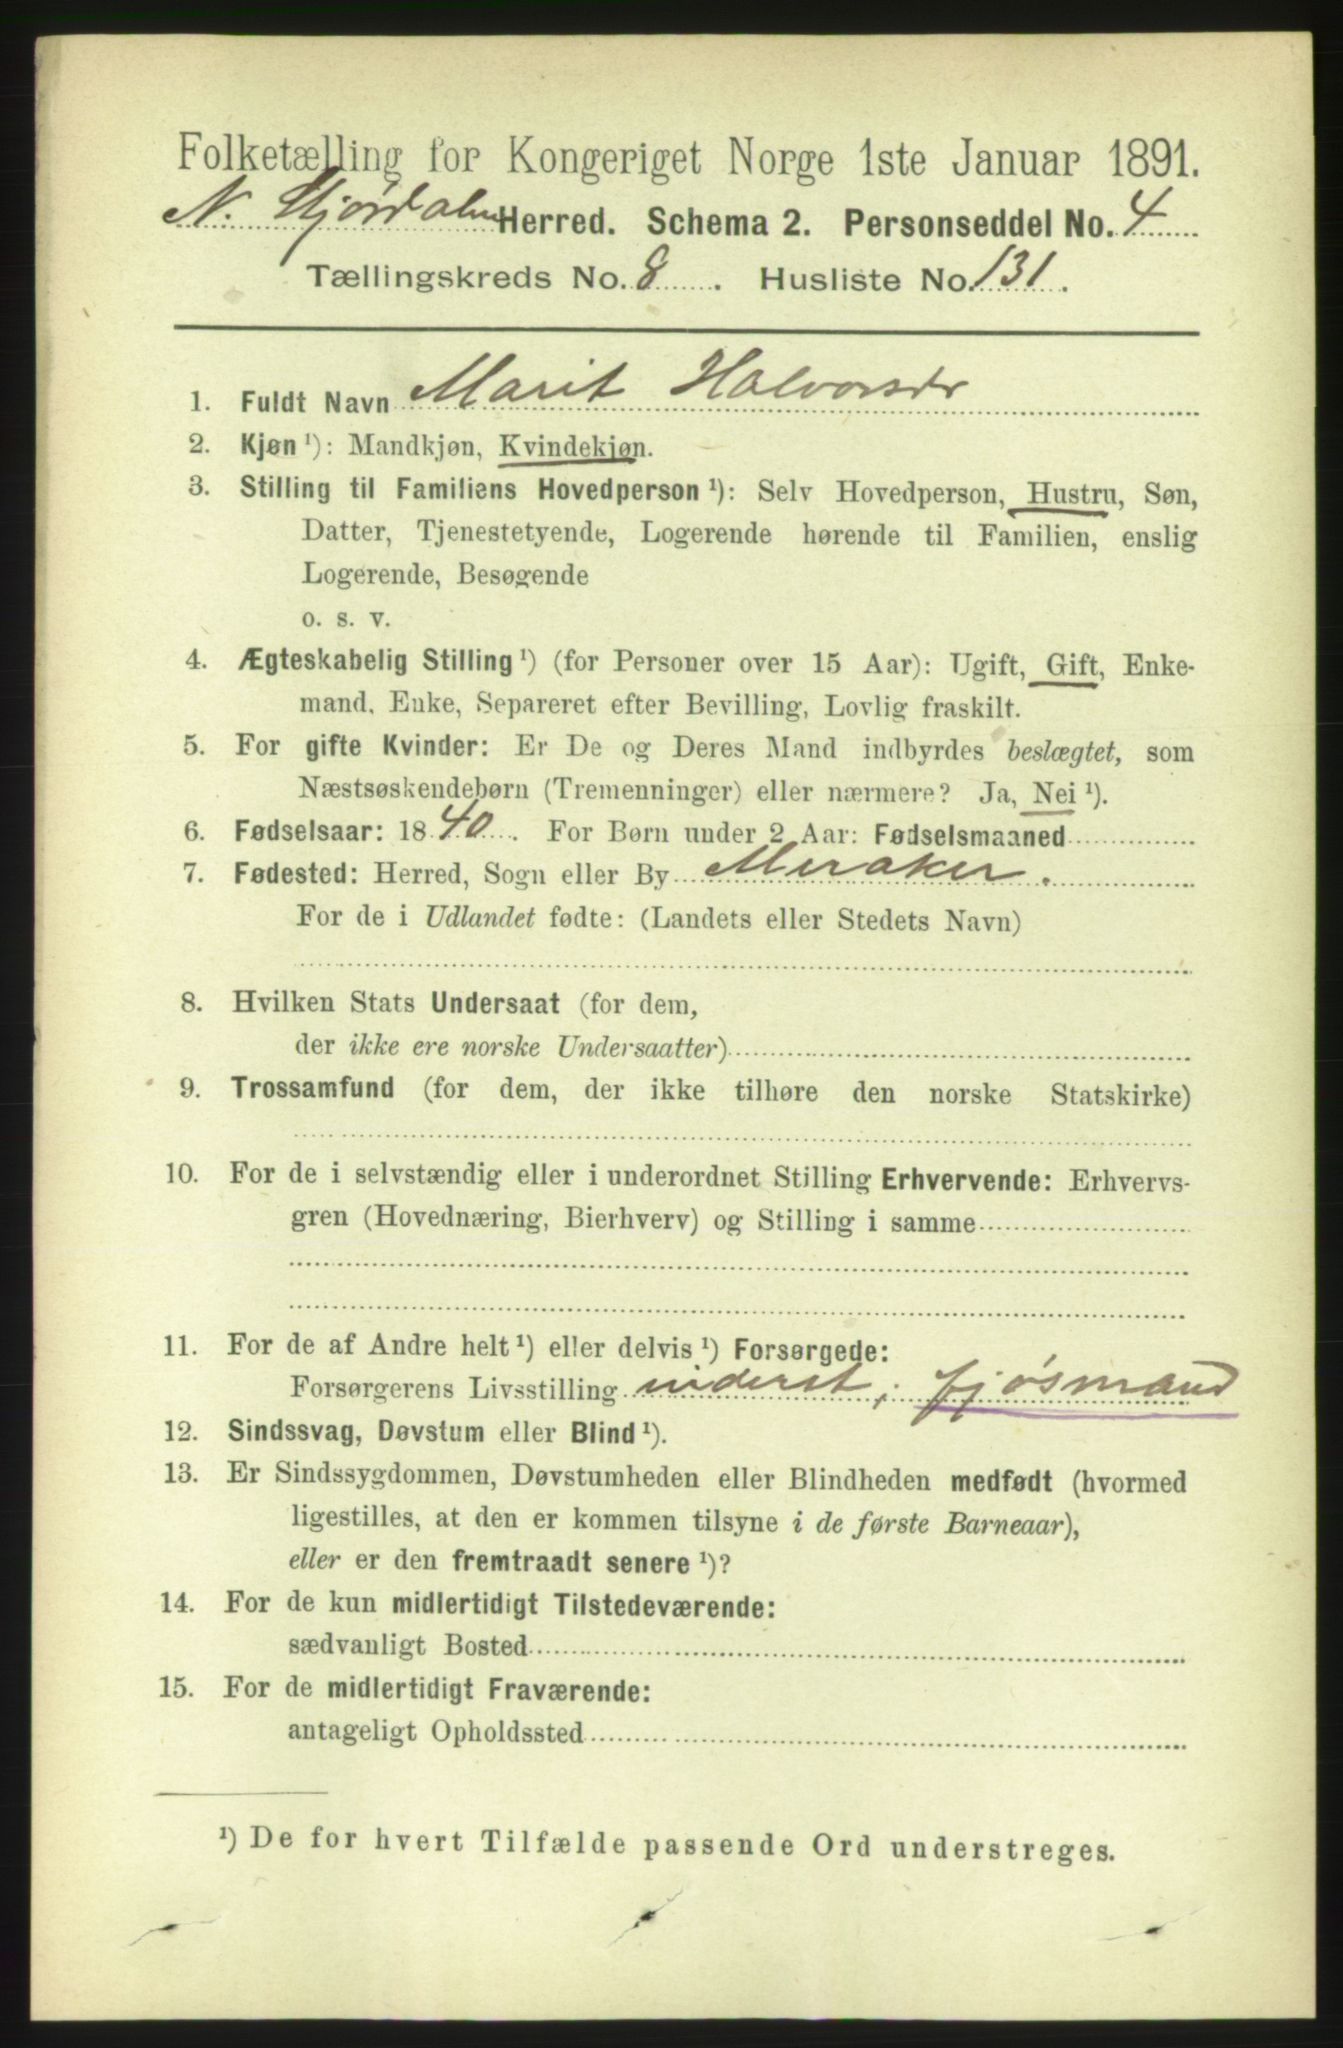 Folketælling for Kongeriget Norge 1ste Januar 1891.
N. Stjørdalen Herred. Schema 2. Personseddel No. 4
Tællingskreds No. 8. Husliste No. 131.
1. Fuldt Navn Marit Halvorsdr
2. Kjøn ¹): Mandkjøn, Kvindekjøn.
3. Stilling til Familiens Hovedperson ¹): Selv Hovedperson, Hustru, Søn,
Datter, Tjenestetyende, Logerende hørende til Familien, enslig
Logerende, Besøgende
o. s. v.
4. Ægteskabelig Stilling ¹) (for Personer over 15 Aar): Ugift, Gift, Enke-
mand, Enke, Separeret efter Bevilling, Lovlig fraskilt.
5. For gifte Kvinder: Er De og Deres Mand indbyrdes beslægtet, som
Næstsøskendebørn (Tremenninger) eller nærmere? Ja, Nei ¹).
6. Fødselsaar: 1840. For Børn under 2 Aar: Fødselsmaaned
7. Fødested: Herred, Sogn eller By Meraker.
For de i Udlandet fødte: (Landets eller Stedets Navn)
8. Hvilken Stats Undersaat (for dem,
der ikke ere norske Undersaatter)
9. Trossamfund (for dem, der ikke tilhøre den norske Statskirke)
10. For de i selvstændig eller i underordnet Stilling Erhvervende: Erhvervs-
gren (Hovednæring, Bierhverv) og Stilling i samme
11. For de af Andre helt ¹) eller delvis ¹) Forsørgede:
Forsørgerens Livsstilling inderst, fjøsmand
12. Sindssvag, Døvstum eller Blind ¹).
13. Er Sindssygdommen, Døvstumheden eller Blindheden medfødt (hvormed
ligestilles, at den er kommen tilsyne i de første Barneaar),
eller er den fremtraadt senere ¹)?
14. For de kun midlertidigt Tilstedeværende:
sædvanligt Bosted
15. For de midlertidigt Fraværende:
antageligt Opholdssted
¹) De for hvert Tilfælde passende Ord understreges.